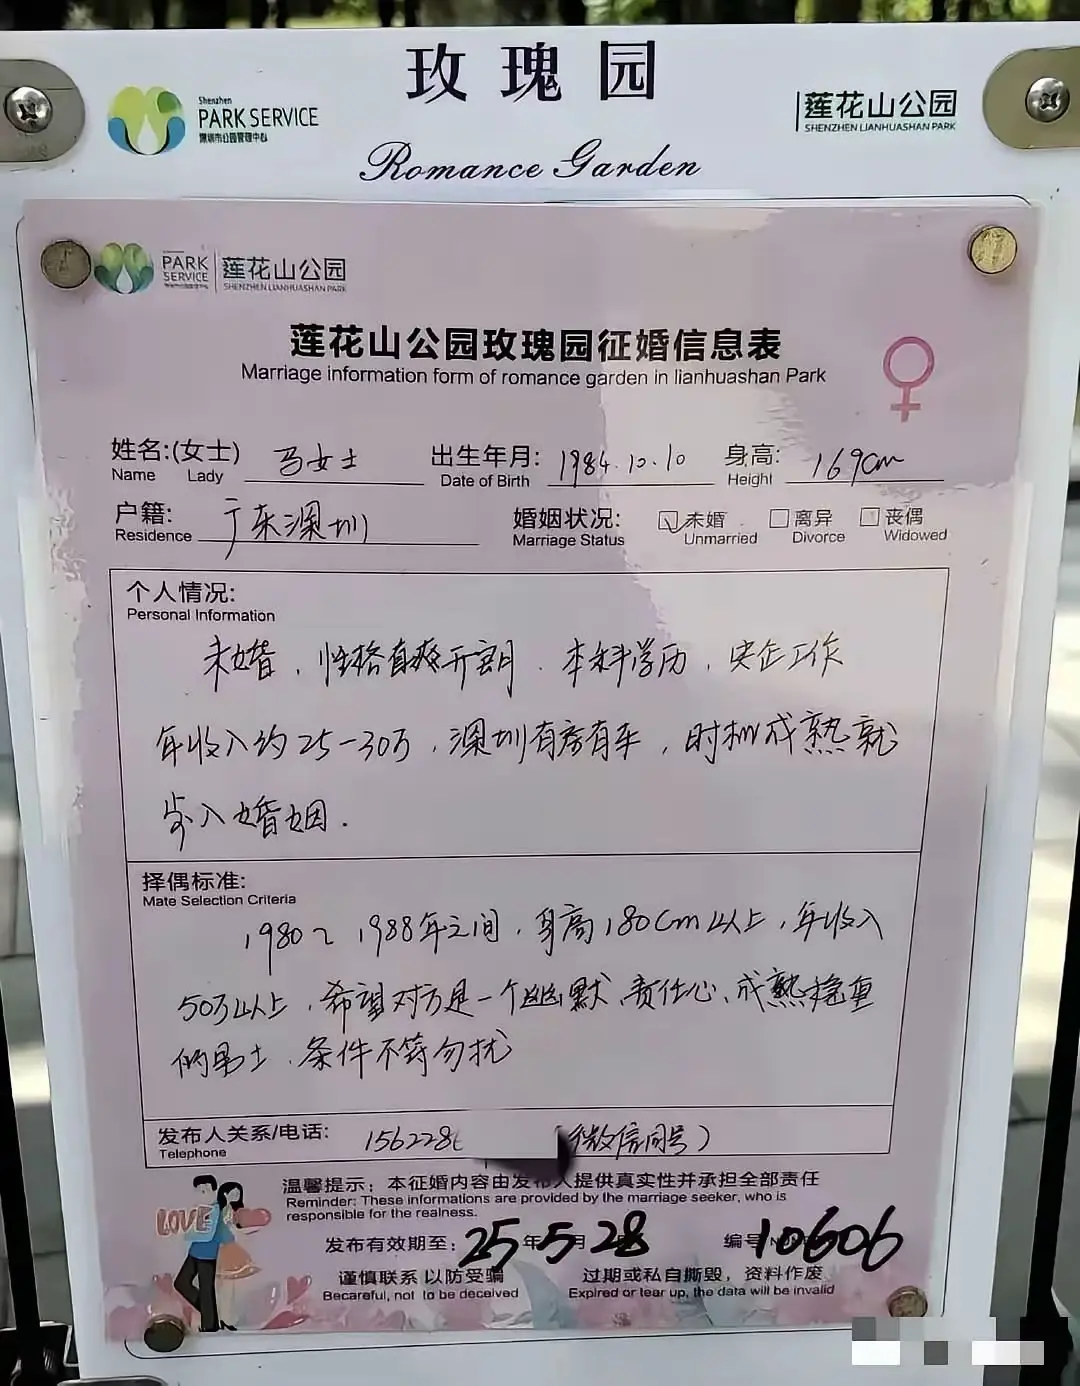 玫瑰园
Shenzhen
PARK SERVICE
深圳市公园管理中心
莲花山公园
SHENZHEN LIANHUASHAN PARK
Romance Garden
PARK SERVICE
莲花山公园
SHENZHEN LIANHUASHAN PARK
莲花山公园玫瑰园征婚信息表
Marriage information form of romance garden in lianhuashan Park
姓名:(女士) 马女士 出生年月: 1984.10.10 身高: 169cm
Name Lady Date of Birth Height
户籍: 广东深圳 婚姻状况: 未婚 离异 丧偶
Residence Marriage Status Unmarried Divorce Widowed
个人情况:
Personal Information
未婚，性格直爽开朗．本科学历，央企工作
年收入约25-30万，深圳有房有车，时机成熟就
步入婚姻．
择偶标准:
Mate Selection Criteria
1980~1988年之间，身高180cm以上，年收入
50万以上，希望对方是一个幽默、责任心、成熟稳重
的男士．条件不符勿扰
发布人关系/电话: 156228 (微信同号)
Telephone
温馨提示：本征婚内容由发布人提供真实性并承担全部责任
Reminder: These informations are provided by the marriage seeker, who is
responsible for the realness.
LOVE
发布有效期至: 25年5月28 编号 10606
谨慎联系 以防受骗 过期或私自撕毁，资料作废
Becareful, not to be deceived Expired or tear up, the data will be invalid